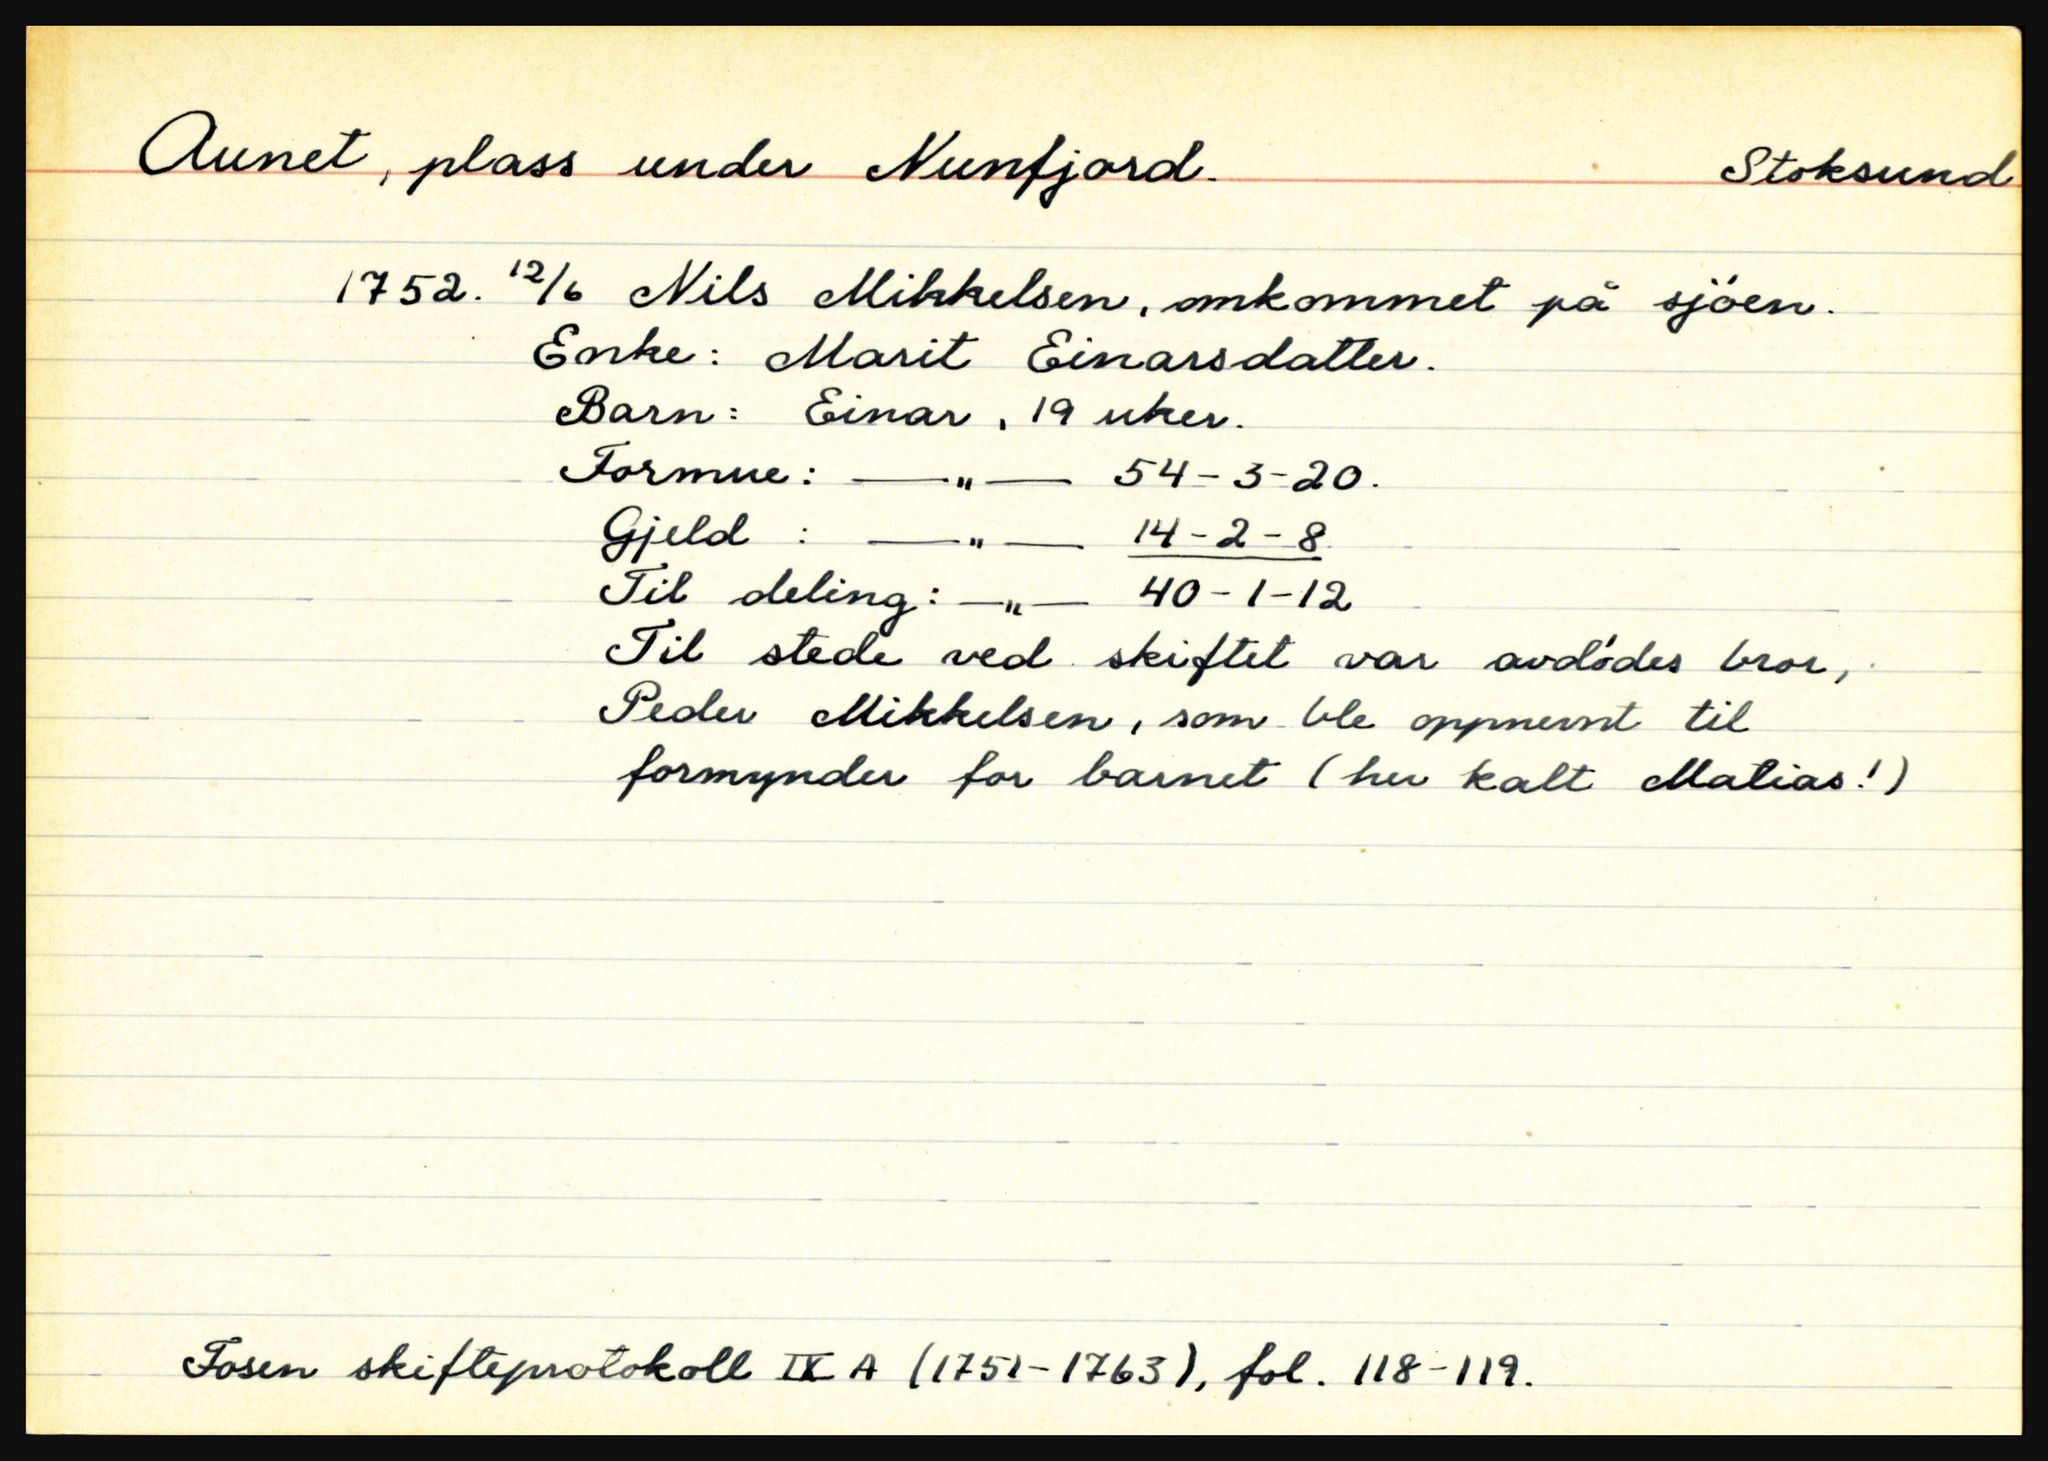 Aunet, plass under Nunfjord. Stoksund
1752. 12/6 Nils Mikkelsen, omkommet på sjöen.
Enke: Marit Einarsdatter.
Barn: Einar, 19 uker.
Formue: —"— 54-3-20.
Gjeld : —"— 14-2-8
Til deling: —"— 40-1-12
Til stede ved skiftet var avdödes bror,
Peder Mikkelsen, som ble oppnevnt til
formynder for barnet (her kalt Matias!)
Fosen skifteprotokoll IX A (1751-1763), fol. 118-119.